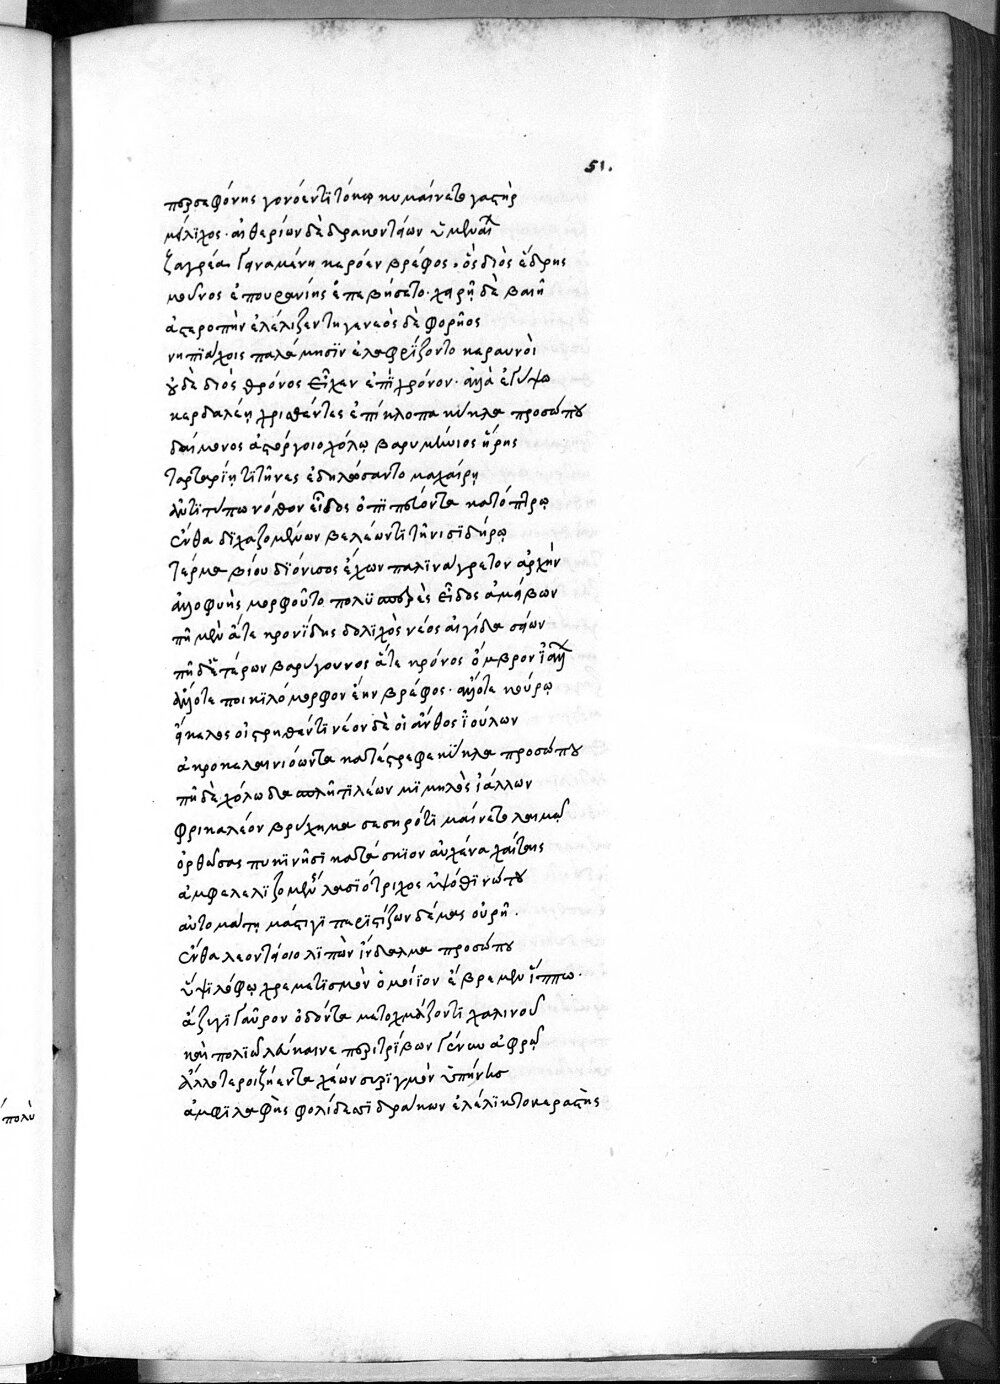 51.
περσεφόνης γονόεντι τόκω κυμαίνετο γαςὴρ
μείλιχος· αἰθερίων δὲ δρακοντείων ὑμεναί
ζαγρέα γειναμένη κερόεν βρέφος· ὃς διὸς ἕδρης
μοῦνος ἐπουρανίης ἐπεβήσετο· χειρὶ δὲ βαιῇ
ἀςεροπὴν ἐλέλιζεν νεηγενέος δὲ φορῆος
νηπιάχοις παλάμησιν ἐλαφρίζοντο κεραυνοὶ
οὐδὲ διὸς θρόνος εἶχεν ἐπὶ χρόνον· ἀλλὰ ἑ γύψω
κερδαλέη χρισθέντες ἐπίκλοπα κύκλα προσώπου
δαίμονος ἀςόργοιο χόλω βαρυμήνιος ἥρης
ταρταρίη τιτῆνες ἐδηλήσαντο μαχαίρη
ἀντιτύπω νόθον εἶδος ὀπιπτεύοντα κατόπτρω
ἔνθα διχαζομένων μελέων τιτῆνι σιδήρω
τέρμα βίου διόνυσος ἔχων παλινάγρετον ἀρχὴν
ἀλλοφυὴς μορφοῦτο πολυσπερὲς εἶδος ἀμείβων
πῆ μὲν ἅτε κρονίδης δολιχὸς νέος αἰγίδα σείων
πῆ δὲ γέρων βαρύγουνος ἅτε κρόνος ὄμβρον ἰάλλων
ἄλλοτε ποικιλόμορφον ἔην βρέφος· ἄλλοτε κούρω
εἴκελος οἰςρηθέντι νέον δέ οἱ ἄνθος ἰούλων
ἀκροκελαινιόωντα κατέςρεφε κύκλα προσώπου
πῆ δὲ χόλω δασπλῆτι λέων μιμηλὸς ἰάλλων
φρικαλέον βρύχημα σεσηρότι μαίνετο λαιμῶ
ὀρθώσας πυκινῆσι κατάσκιον αὐχένα χαίταις
ἀμφελελιζομένου λασιότριχος ὑψόθι νώτου
αὐτομάτη μάςιγι περιςίζων δέμας οὐρῇ·
ἔνθα λεοντείοιο λιπὼν ἴνδαλμα προσώπου
ὑψιλόφω χρεμετισμὸν ὁμοίιον ἔβρεμεν ἵππω·
ἄζυγι γαῦρον ὀδόντα μετοχμάζοντι χαλινοῦ
καὶ πολιῶ λεύκαινε περιτρίβων γένυν ἀφρῶ
ἄλλοτε ῥοιζήεντα χέων συριγμὸν ὑπήνης
ἀμφιλαφὴς φολίδεσσι δράκων ἐλέλικτο κεράςης
πολὺ